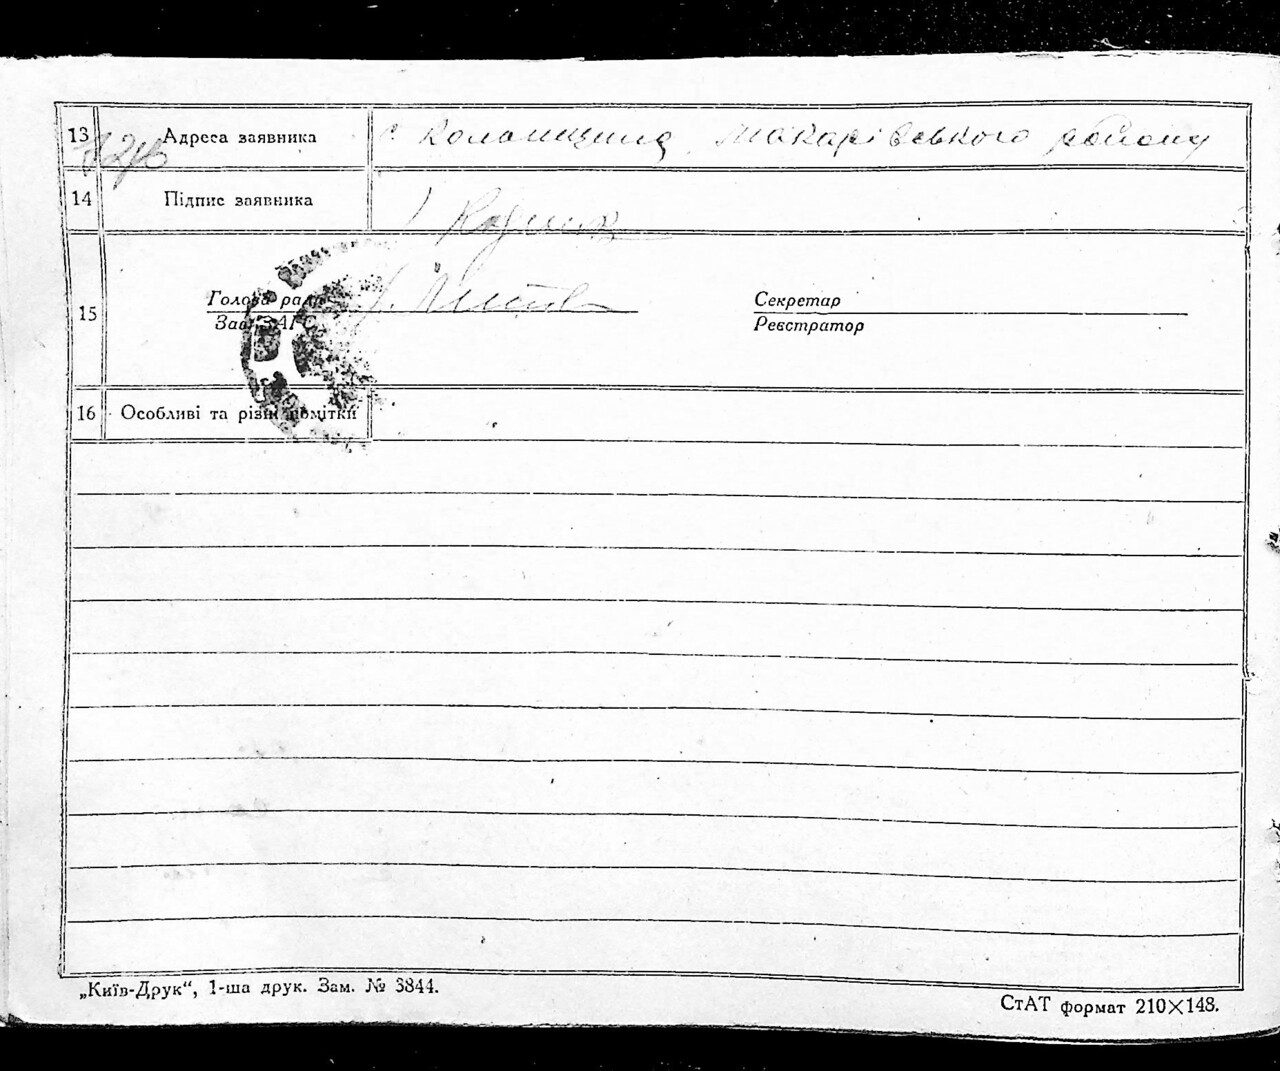 13 Адреса заявника с Коломищина Макарівського району
14 Підпис заявника
15 Голова ради
Зав. ЗАГС
Секретар
Реєстратор
16 Особливі та різні помітки
„Київ-Друк“, 1-ша друк. Зам. № 3844.
СтАТ формат 210×148.